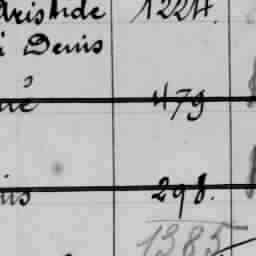 Aristide 1224.
Denis
479
298.
1385